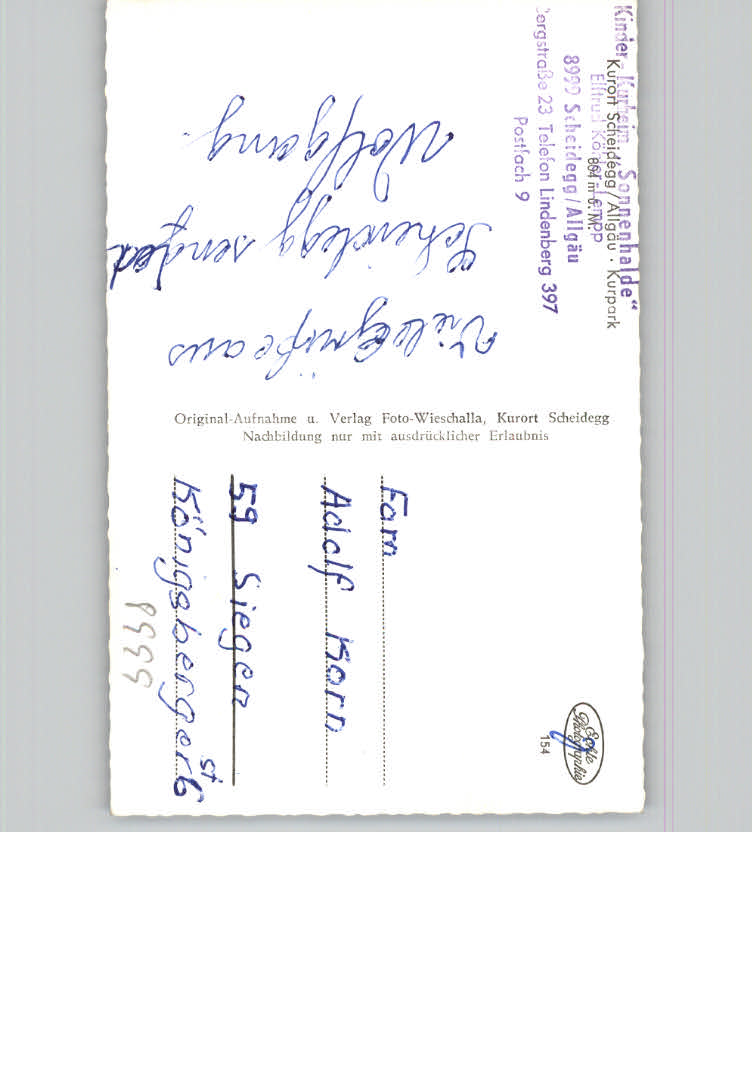 Kinder - Kurheim „Sonnenhalde“
8999 Scheidegg/Allgäu
Bergstraße 23 Telefon Lindenberg 397
Postfach 9
Kurort Scheidegg/Allgäu · Kurpark
804 m ü. M.
Viele Grüße aus
Scheidegg sendet
Wolfgang.
Original-Aufnahme u. Verlag Foto-Wieschalla, Kurort Scheidegg
Nachbildung nur mit ausdrücklicher Erlaubnis
Echte
Photographie
154
Fam
Adolf Korn
59 Siegen
Königsberger st 6